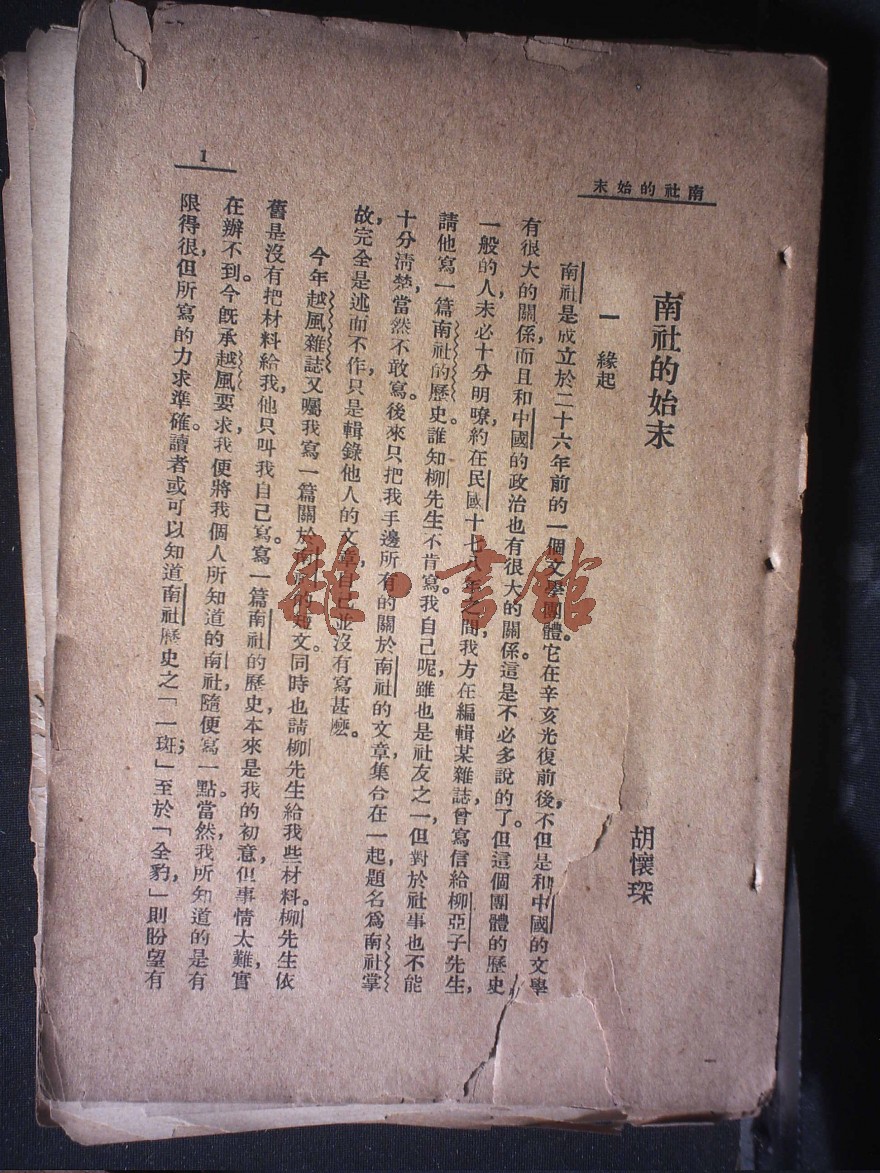 南社的始末
1
南社的始末
胡懷琛
一　緣起
南社是成立於二十六年前的一個文學團體。它在辛亥光復前後，不但是和中國的文學
有很大的關係，而且和中國的政治也有很大的關係。這是不必多說的了。但這個團體的歷史，
一般的人未必十分明瞭，約在民國十七八年之間，我方在編輯某雜誌，曾寫信給柳亞子先生，
請他寫一篇南社的歷史。誰知柳先生不肯寫。我自己呢，雖也是社友之一，但對於社事也不能
十分清楚，當然不敢寫。後來只把我手邊所有的關於南社的文章，集合在一起，題名爲南社掌
故，完全是述而不作，只是輯錄他人的文章，自己並沒有寫甚麼。
今年越風雜誌又囑我寫一篇關於南社的短文。同時也請柳先生給我些材料。柳先生依
舊是沒有把材料給我，他只叫我自己寫。寫一篇南社的歷史，本來是我的初意，但事情太難，實
在辦不到。今旣承越風要求，我便將我個人所知道的南社，隨便寫一點。當然，我所知道的是有
限得很，但所寫的力求準確。讀者或可以知道南社歷史之「一斑；」至於「全豹，」則盼望有
雜·書館